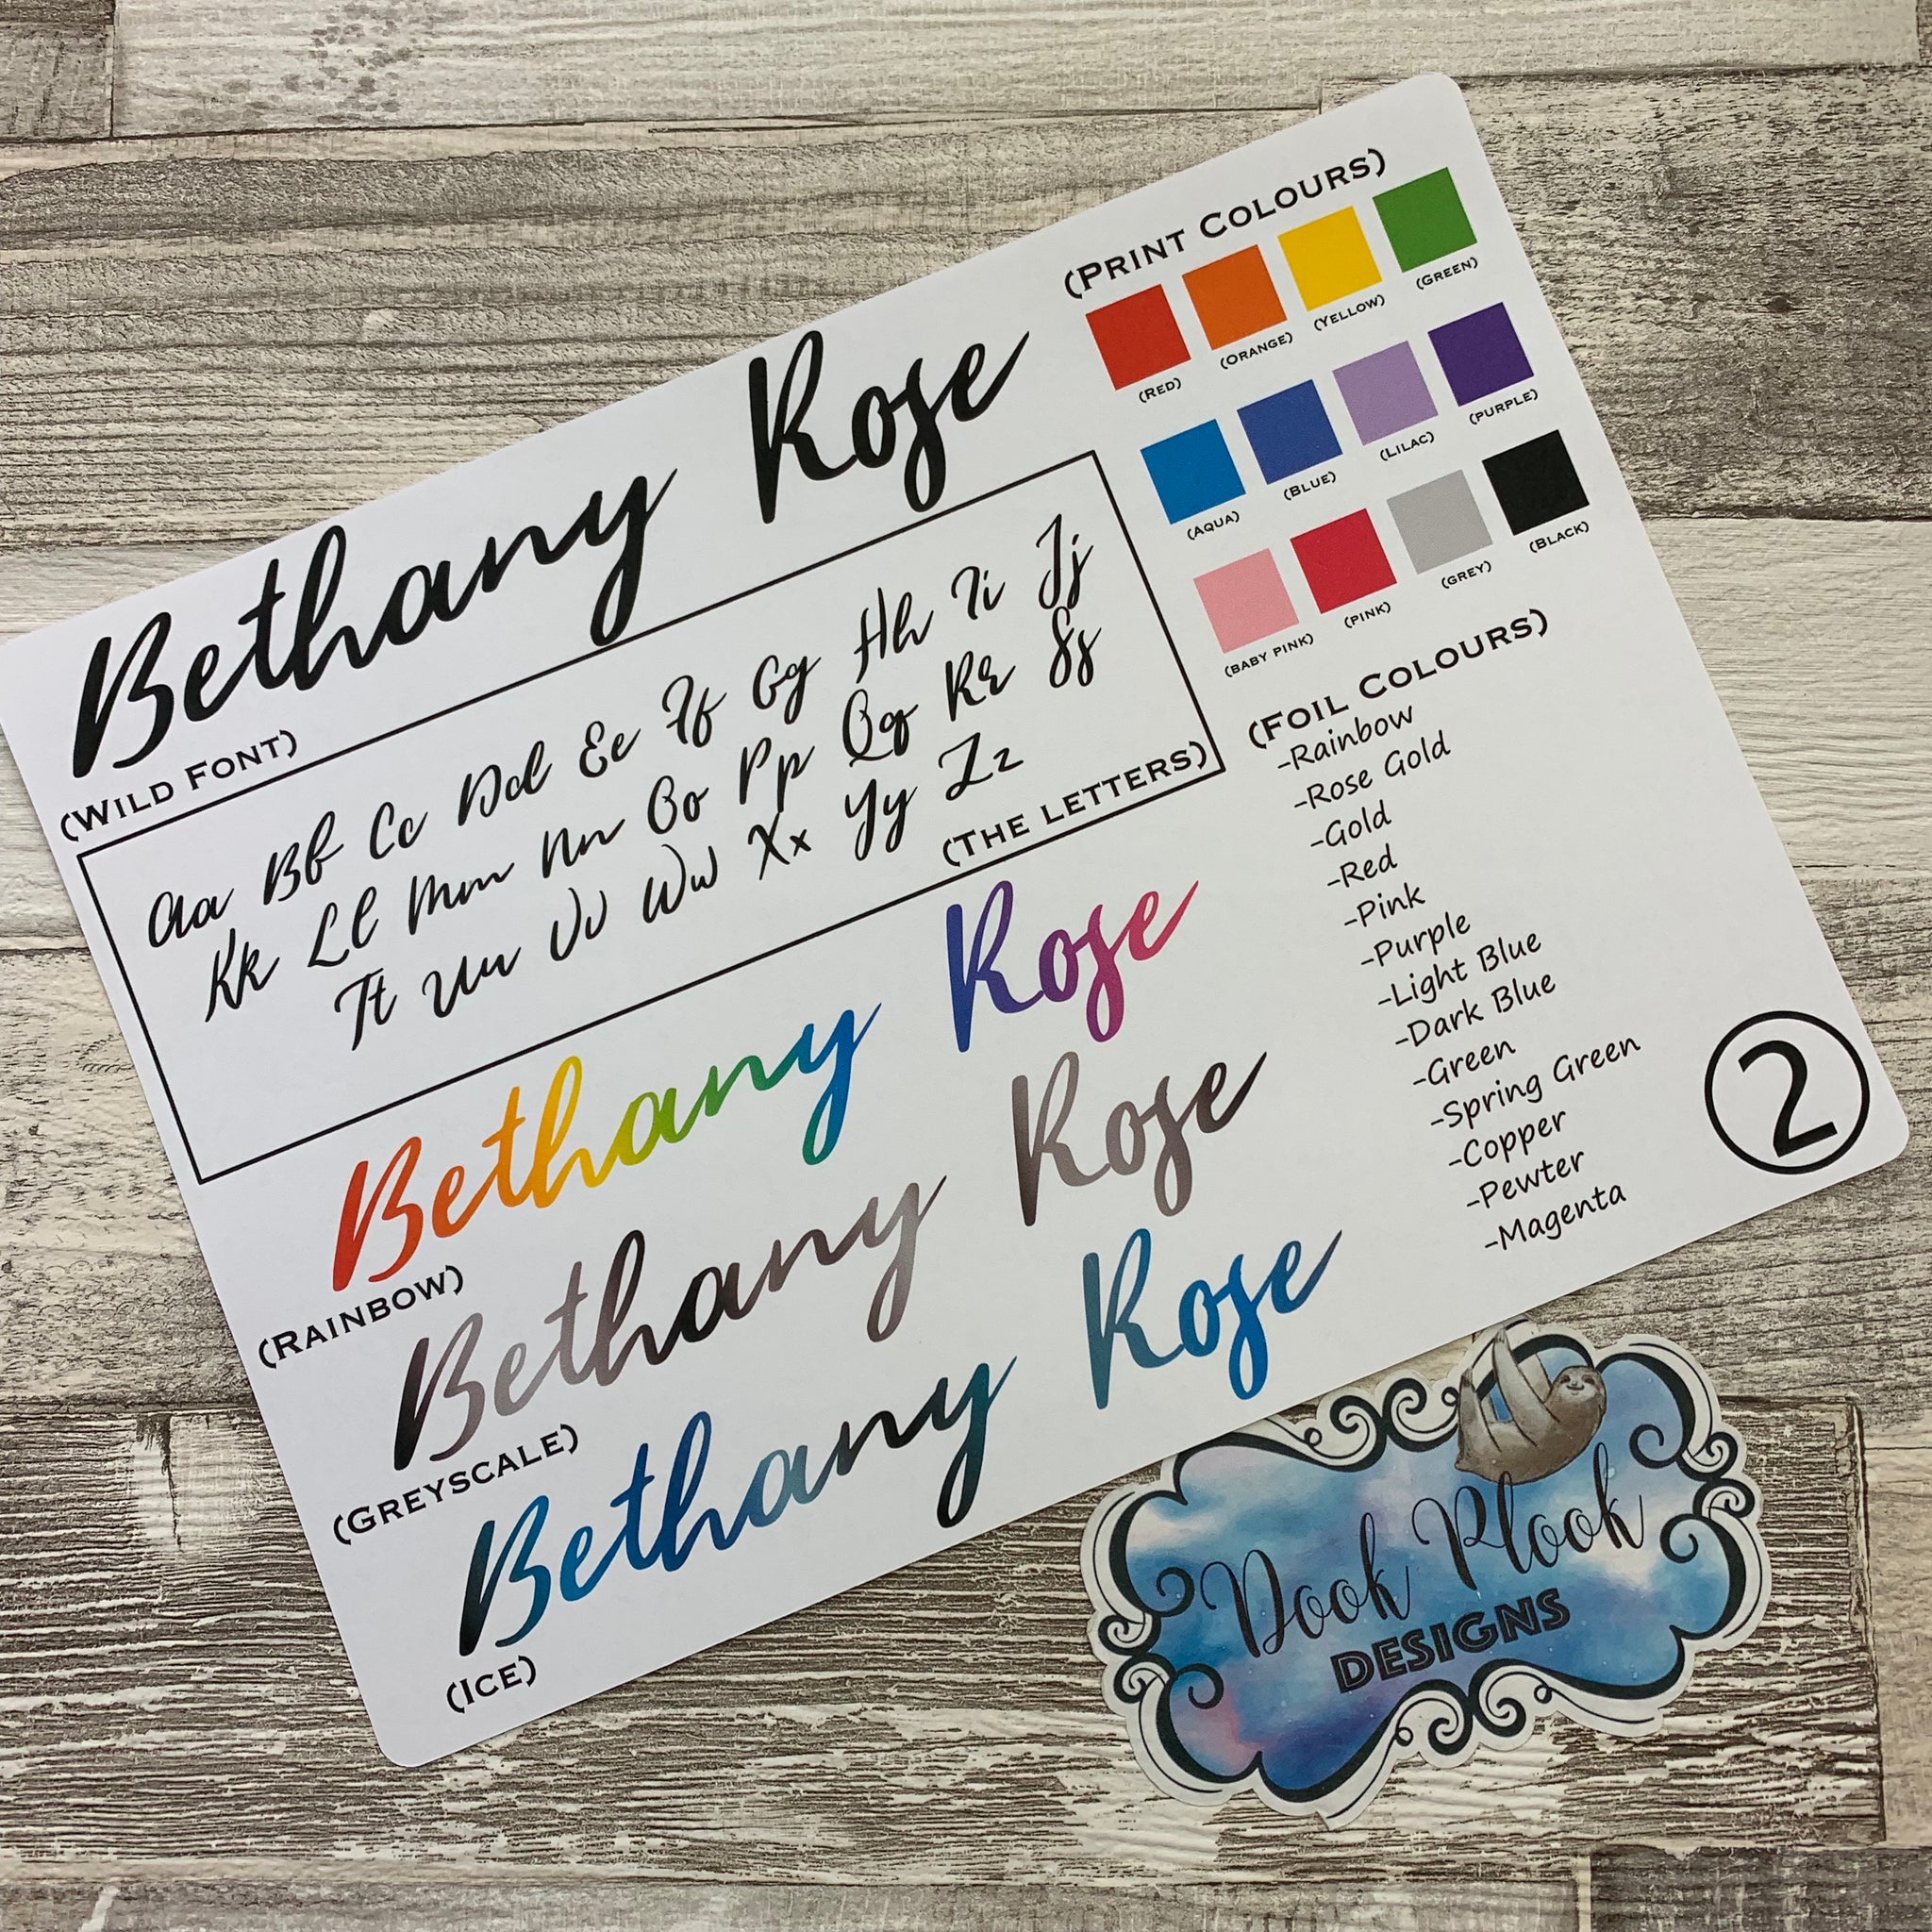 Bethany Rose
(WILD FONT)
Aa Bb Cc Dd Ee Ff Gg Hh Ii Jj
Kk Ll Mm Nn Oo Pp Qq Rr Ss
Tt Uu Vv Ww Xx Yy Zz
(THE LETTERS)
Bethany Rose
(RAINBOW)
Bethany Rose
(GREYSCALE)
Bethany Rose
(ICE)
(PRINT COLOURS)
(RED) (ORANGE) (YELLOW) (GREEN)
(AQUA) (BLUE) (LILAC) (PURPLE)
(BABY PINK) (PINK) (GREY) (BLACK)
(FOIL COLOURS)
-Rainbow
-Rose Gold
-Gold
-Red
-Pink
-Purple
-Light Blue
-Dark Blue
-Green
-Spring Green
-Copper
-Pewter
-Magenta
2
Dook Plook
DESIGNS